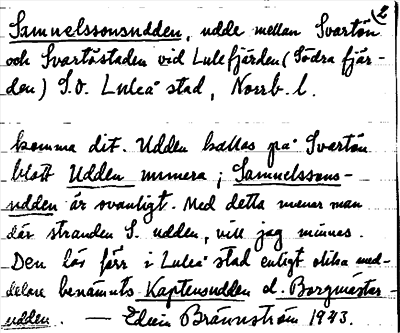 2
Samuelssonsudden, udde mellan Svartön
och Svartöstaden vid Lulefjärden (Södra fjär-
den) S.O. Luleå stad, Norrb. l.
komma dit. Udden kallas på Svartön
blott Udden numera; Samuelssons-
udden är ovanligt. Med detta menar man
där stranden S. udden, vill jag minnas.
Den lär förr i Luleå stad enligt olika med-
delare benämts Kaptensudden el. Borgmästar-
udden. — Edvin Brännström 1943.